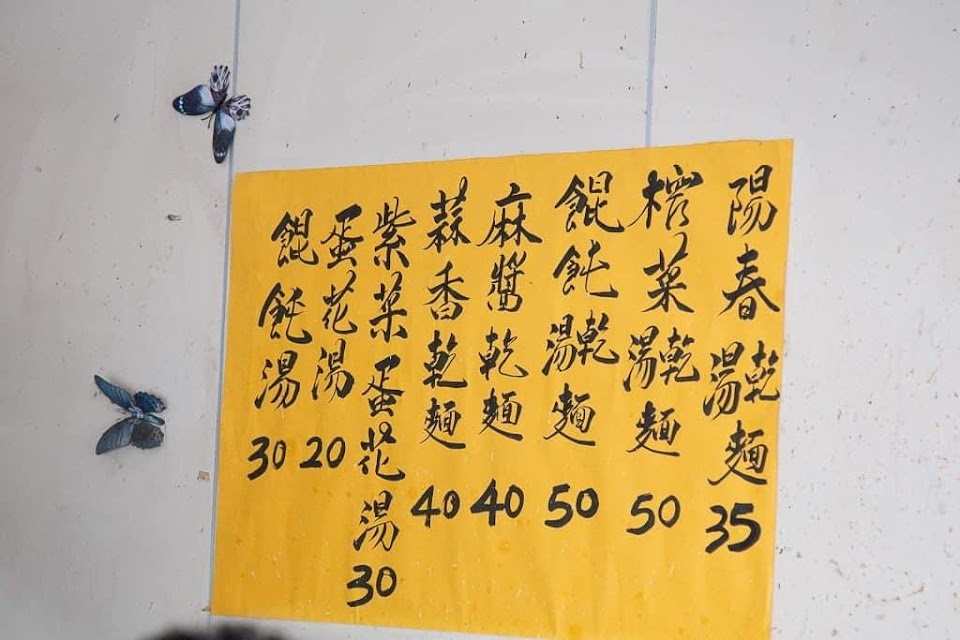 陽春乾湯麵35
榨菜乾湯麵50
餛飩乾湯麵50
麻醬乾麵40
蒜香乾麵40
紫菜蛋花湯30
蛋花湯20
餛飩湯30